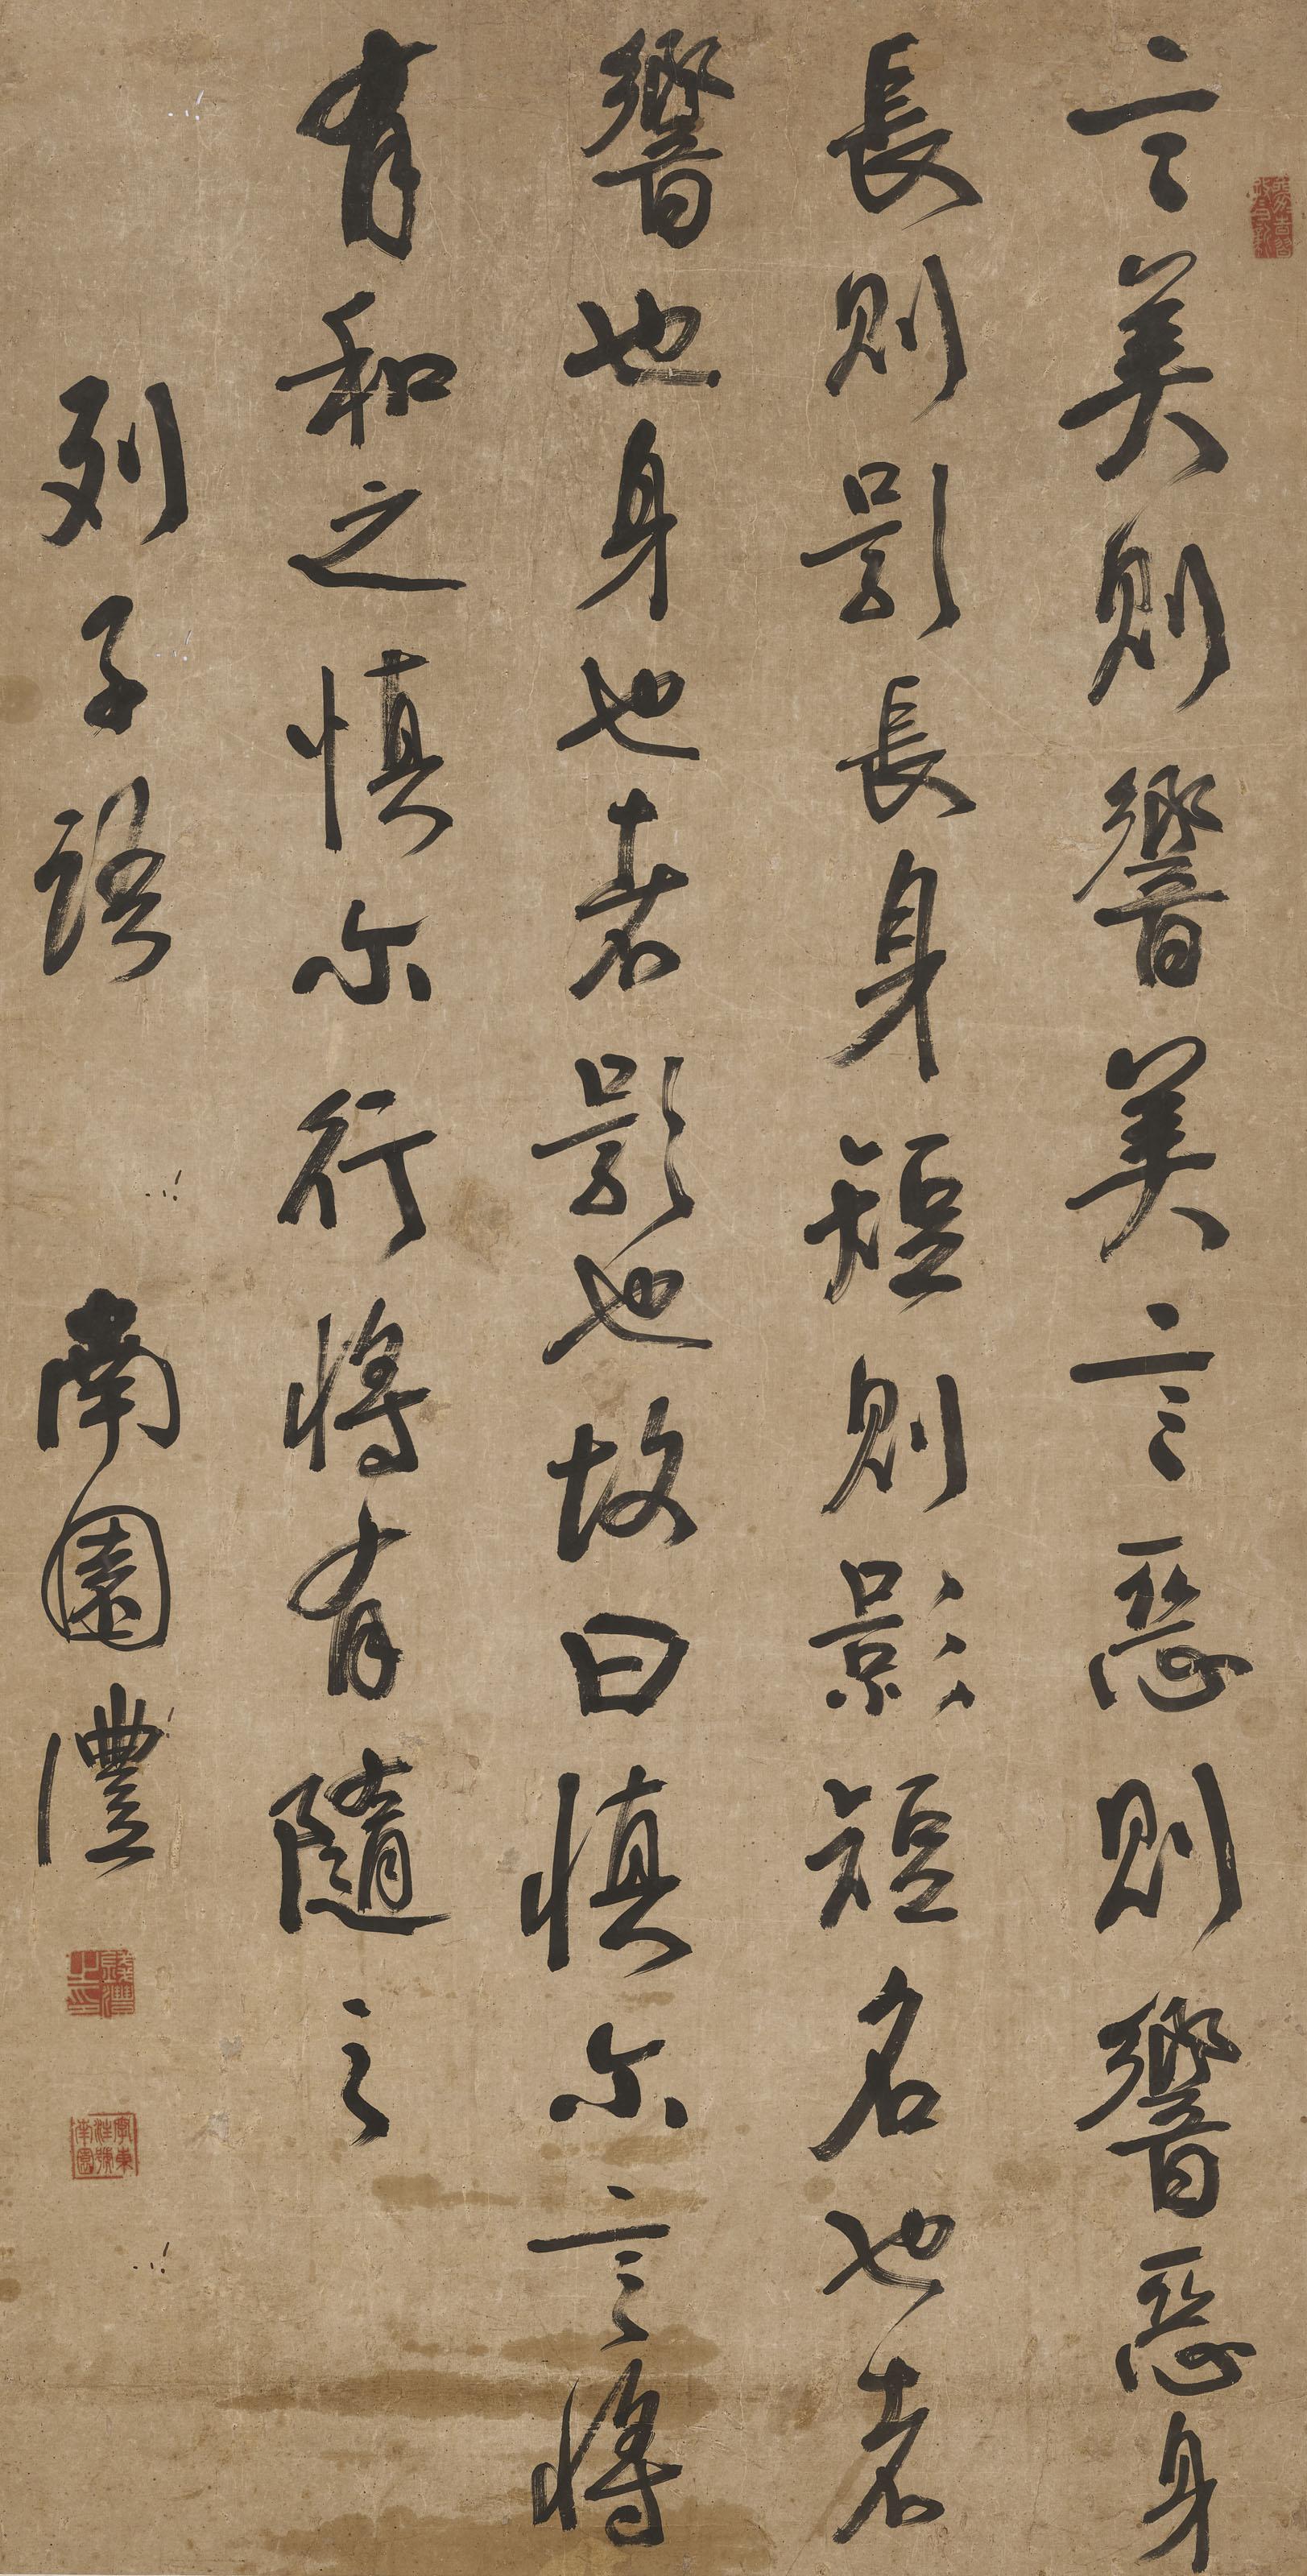 言美則響美言惡則響惡身
長則影長身短則影短名也者
響也身也者影也故曰慎尒言將
有和之慎尒行將有隨之
列子語 南園灃
錢灃之印
字東注號南園